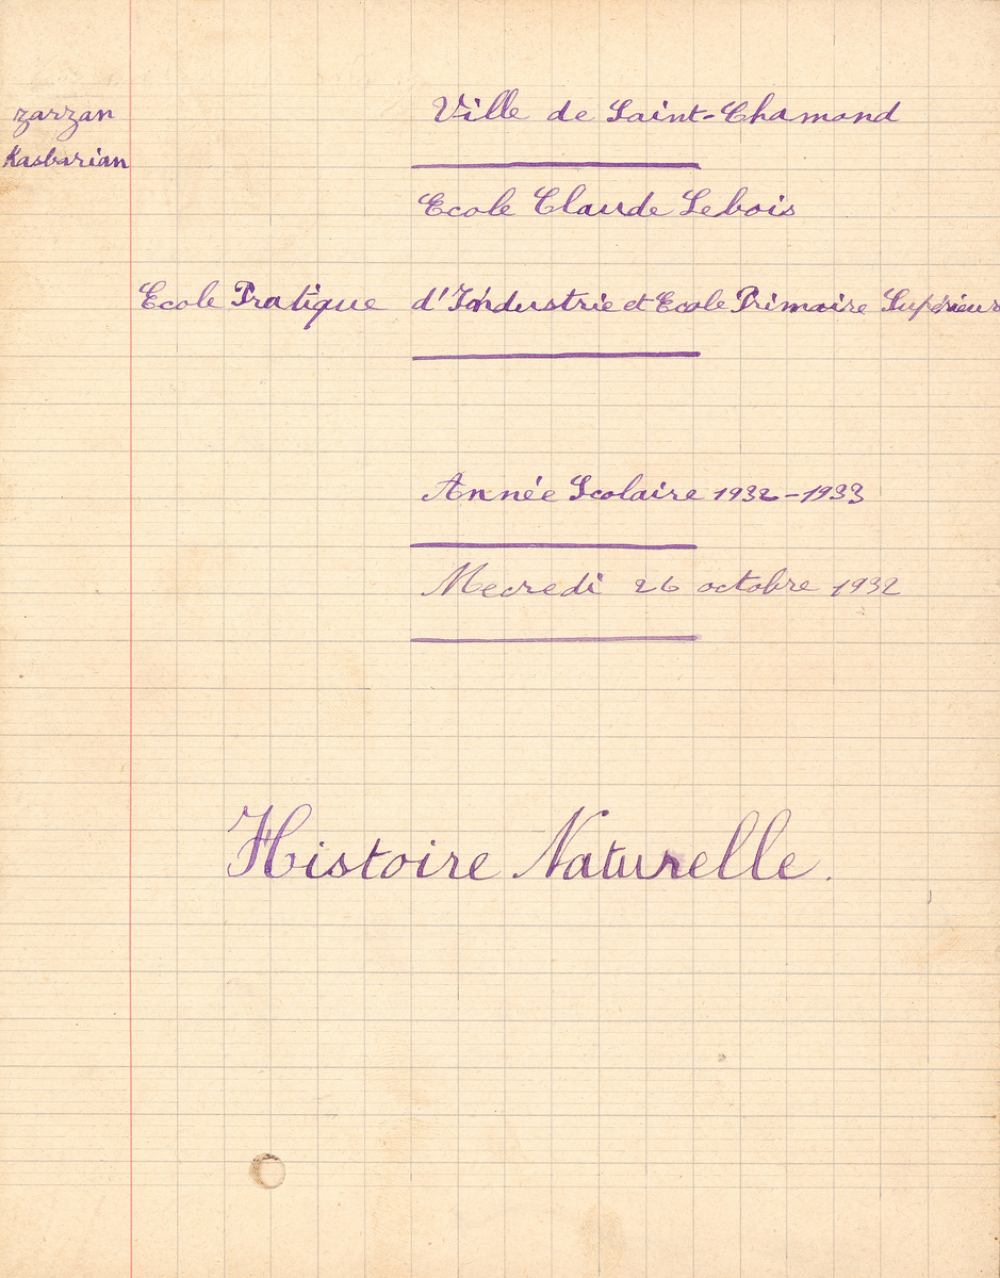 zarzan
Kasbarian
Ville de Saint-Chamond
Ecole Claude Lebois
Ecole Pratique d'Industrie et Ecole Primaire Supérieur
Année Scolaire 1932-1933
Mecredi 26 octobre 1932
Histoire Naturelle.